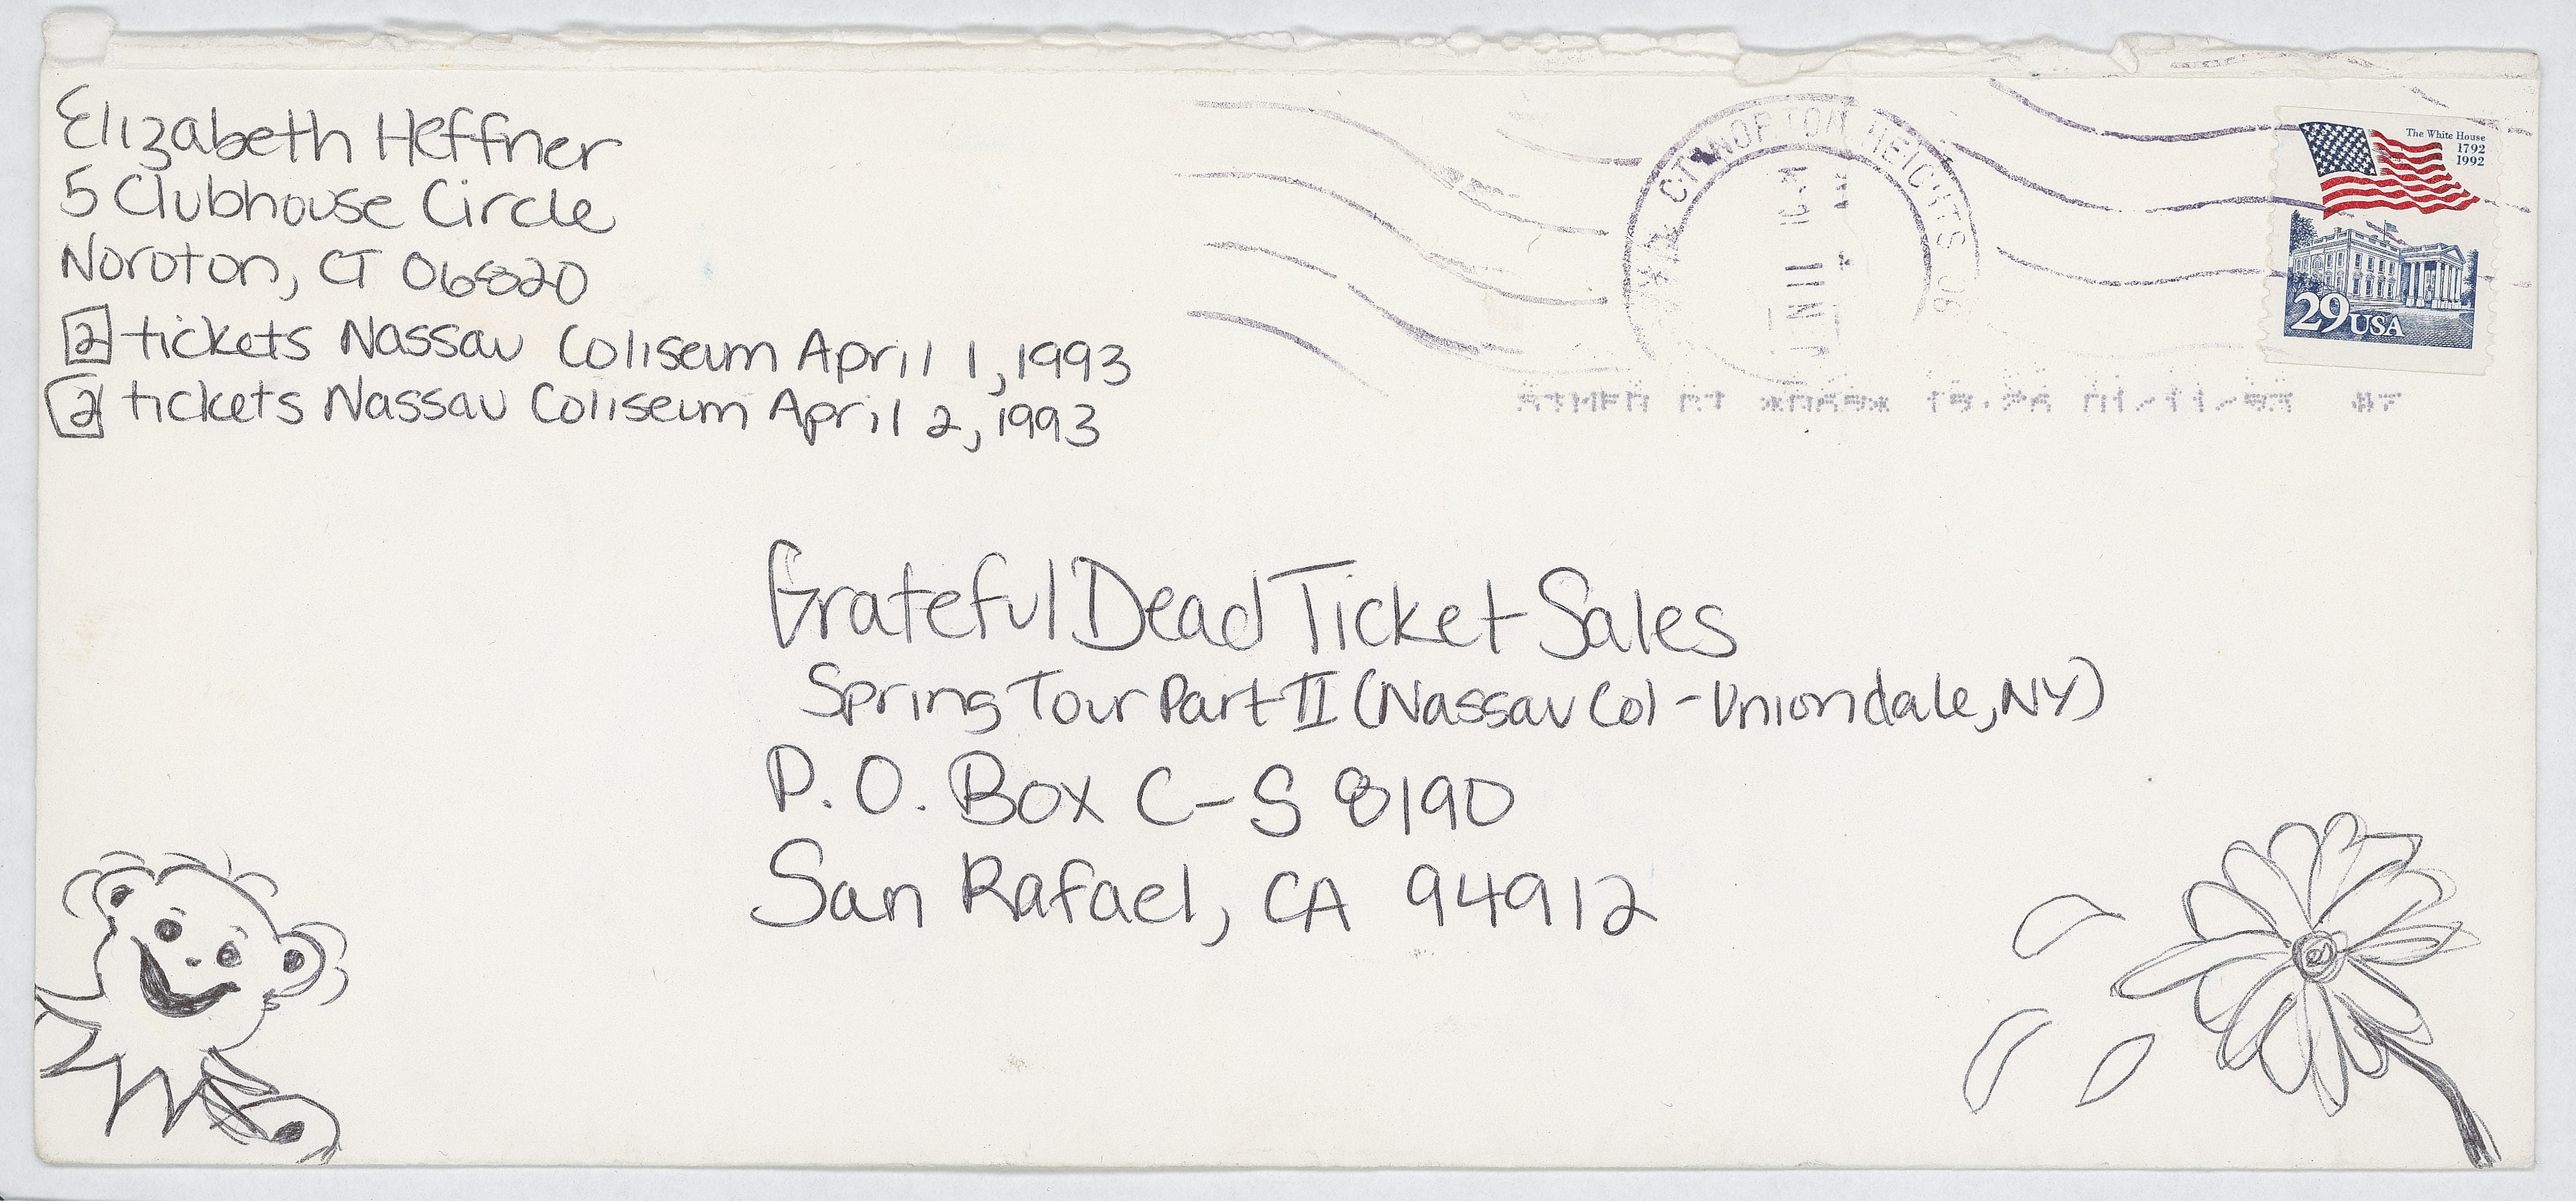 Elizabeth Heffner
5 Clubhouse Circle
Noroton, CT 06820
2 tickets Nassau Coliseum April 1, 1993
2 tickets Nassau Coliseum April 2, 1993
NOROTON HEIGHTS CT 06
JAN 11
The White House
1792
1992
29 USA
01/11/93 #7
Grateful Dead Ticket Sales
Spring Tour Part II (Nassau Col - Uniondale, NY)
P.O. Box C-S 8190
San Rafael, CA 94912